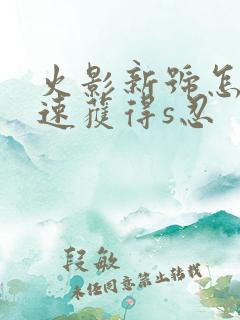 火影新號怎
速獲得s忍
段敏
未经同意禁止转载